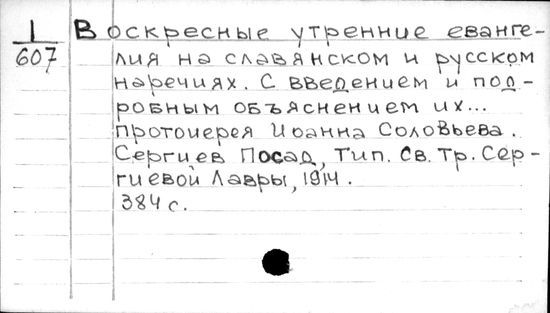 I Воскресные утренние еванге-
607 лия на славянском и русском
наречиях. С введением и под-
робным объяснением их...
протоиерея Иоанна Соловьева.
Сергиев Посад, Тип. Св. Тр. Сер-
гиевой Лавры, 1914.
384 с.